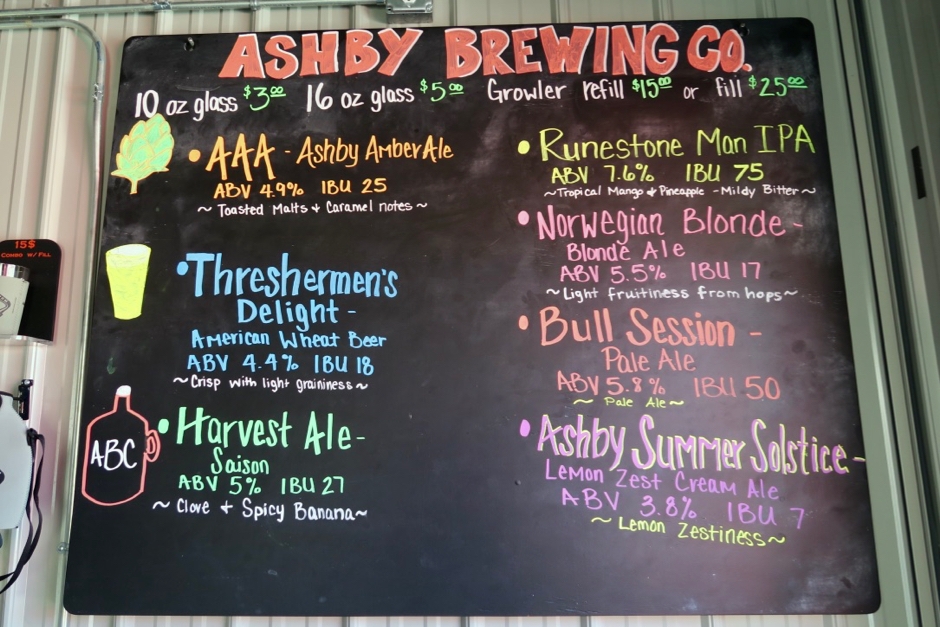 ASHBY BREWING CO.
10 oz glass $3.00 16 oz glass $5.00 Growler refill $15.00 or fill $25.00
• AAA - Ashby Amber Ale
ABV 4.9% IBU 25
~ Toasted Malts + Caramel notes ~
• Threshermen's
Delight -
American Wheat Beer
ABV 4.4% IBU 18
~ Crisp with light graininess ~
• Harvest Ale -
Saison
ABV 5% IBU 27
~ Clove + Spicy Banana ~
ABC
• Runestone Man IPA
ABV 7.6% IBU 75
~ Tropical Mango + Pineapple - Mildy Bitter ~
• Norwegian Blonde -
Blonde Ale
ABV 5.5% IBU 17
~ Light fruitiness from hops ~
• Bull Session -
Pale Ale
ABV 5.8% IBU 50
~ Pale Ale ~
• Ashby Summer Solstice -
Lemon Zest Cream Ale
ABV 3.8% IBU 7
~ Lemon Zestiness ~
15$
COMBO W/ FILL